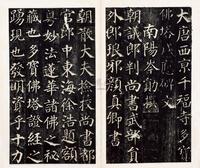 大唐西京千福寺多寶
佛塔感應碑文
南陽岑勛撰
朝議郎判尚書武部員
外郎琅邪顏真卿書
朝散大夫撿校尚書都
官郎中東海徐浩題額
粵妙法蓮華諸佛之秘
藏也多寶佛塔證經之
踴現也發明資乎十力